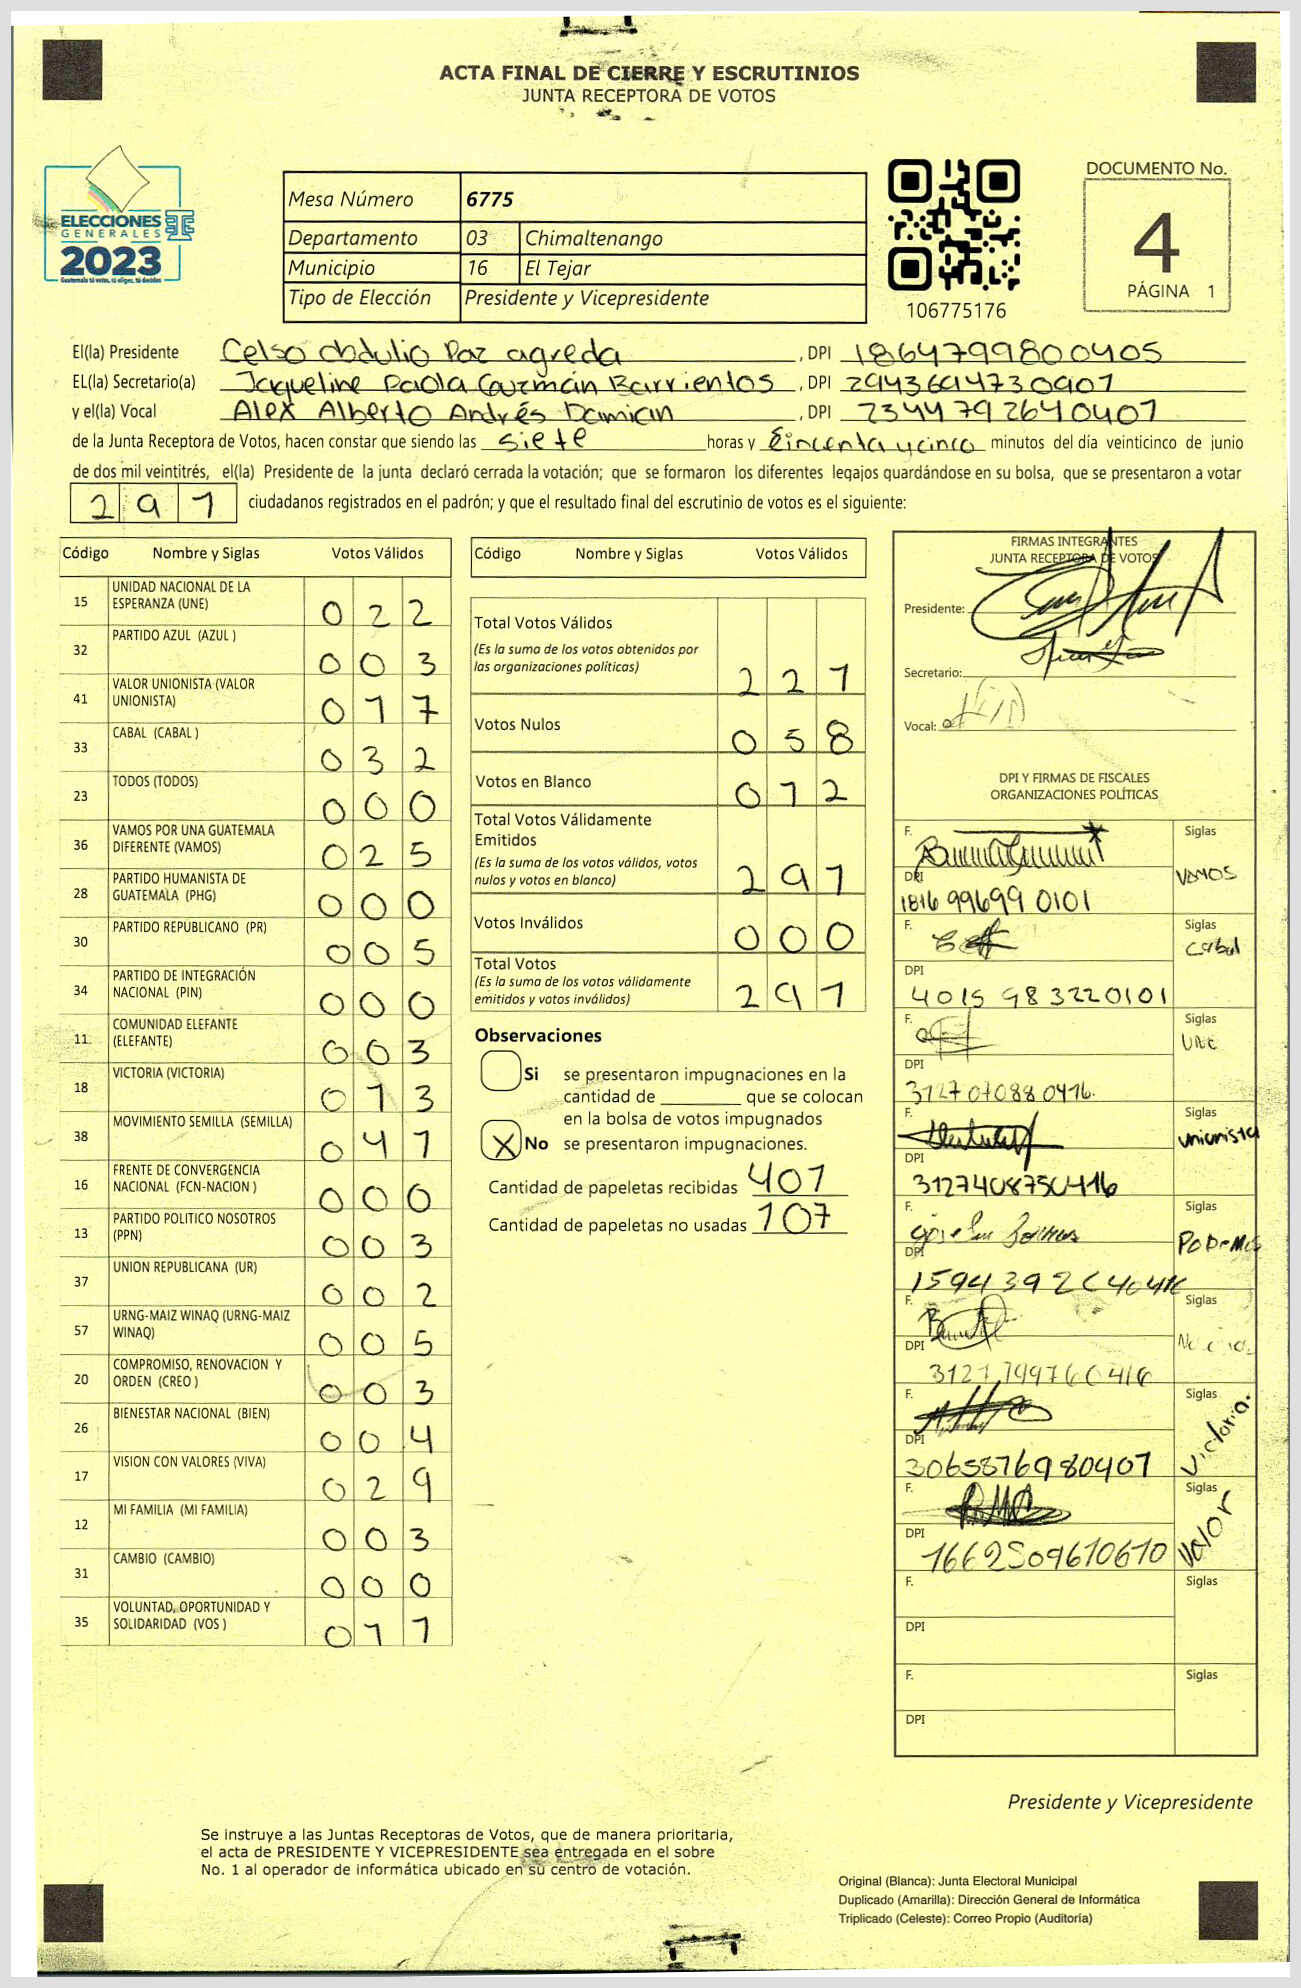 ACTA FINAL DE CIERRE Y ESCRUTINIOS
JUNTA RECEPTORA DE VOTOS
ELECCIONES
GENERALES
2023
Guatemala tú votas, tú eliges, tú decides
Mesa Número 6775
Departamento 03 Chimaltenango
Municipio 16 El Tejar
Tipo de Elección Presidente y Vicepresidente
106775176
DOCUMENTO No.
4
PÁGINA 1
El(la) Presidente Celso obdulio Paz agreda , DPI 1864799800405
EL(la) Secretario(a) Jaqueline Paola Guzmán Barrientos , DPI 2943694730901
y el(la) Vocal Alex Alberto Andrés Damian , DPI 2344792640407
de la Junta Receptora de Votos, hacen constar que siendo las siete horas y Cincenta y cinco minutos del día veinticinco de junio
de dos mil veintitrés, el(la) Presidente de la junta declaró cerrada la votación; que se formaron los diferentes legajos guardándose en su bolsa, que se presentaron a votar
297 ciudadanos registrados en el padrón; y que el resultado final del escrutinio de votos es el siguiente:
Código Nombre y Siglas Votos Válidos
15 UNIDAD NACIONAL DE LA ESPERANZA (UNE) 022
32 PARTIDO AZUL (AZUL ) 003
41 VALOR UNIONISTA (VALOR UNIONISTA) 017
33 CABAL (CABAL ) 032
23 TODOS (TODOS) 000
36 VAMOS POR UNA GUATEMALA DIFERENTE (VAMOS) 025
28 PARTIDO HUMANISTA DE GUATEMALA (PHG) 000
30 PARTIDO REPUBLICANO (PR) 005
34 PARTIDO DE INTEGRACIÓN NACIONAL (PIN) 000
11 COMUNIDAD ELEFANTE (ELEFANTE) 003
18 VICTORIA (VICTORIA) 013
38 MOVIMIENTO SEMILLA (SEMILLA) 047
16 FRENTE DE CONVERGENCIA NACIONAL (FCN-NACION ) 000
13 PARTIDO POLITICO NOSOTROS (PPN) 003
37 UNION REPUBLICANA (UR) 002
57 URNG-MAIZ WINAQ (URNG-MAIZ WINAQ) 005
20 COMPROMISO, RENOVACION Y ORDEN (CREO ) 003
26 BIENESTAR NACIONAL (BIEN) 004
17 VISION CON VALORES (VIVA) 029
12 MI FAMILIA (MI FAMILIA) 003
31 CAMBIO (CAMBIO) 000
35 VOLUNTAD, OPORTUNIDAD Y SOLIDARIDAD (VOS ) 011
Código Nombre y Siglas Votos Válidos
Total Votos Válidos 227
(Es la suma de los votos obtenidos por
las organizaciones políticas)
Votos Nulos 058
Votos en Blanco 012
Total Votos Válidamente
Emitidos 297
(Es la suma de los votos válidos, votos
nulos y votos en blanco)
Votos Inválidos 000
Total Votos 297
(Es la suma de los votos válidamente
emitidos y votos inválidos)
Observaciones
Si se presentaron impugnaciones en la
cantidad de ________ que se colocan
en la bolsa de votos impugnados
X No se presentaron impugnaciones.
Cantidad de papeletas recibidas 407
Cantidad de papeletas no usadas 107
FIRMAS INTEGRANTES
JUNTA RECEPTORA DE VOTOS
Presidente:
Secretario:
Vocal:
DPI Y FIRMAS DE FISCALES
ORGANIZACIONES POLÍTICAS
F. Siglas
VAMOS
DPI
1816 99699 0101
F. Siglas
Cabal
DPI
4015 98322 0101
F. Siglas
UNE
DPI
3127070880416.
F. Siglas
Unionista
DPI
3127408750416
F. Siglas
PODEMOS
DPI
F. Siglas
DPI
F. Siglas
Victoria.
DPI
3065876980407
F. Siglas
Valor
DPI
1662509610610
F. Siglas
DPI
F. Siglas
DPI
Presidente y Vicepresidente
Se instruye a las Juntas Receptoras de Votos, que de manera prioritaria,
el acta de PRESIDENTE Y VICEPRESIDENTE sea entregada en el sobre
No. 1 al operador de informática ubicado en su centro de votación.
Original (Blanca): Junta Electoral Municipal
Duplicado (Amarilla): Dirección General de Informática
Triplicado (Celeste): Correo Propio (Auditoría)